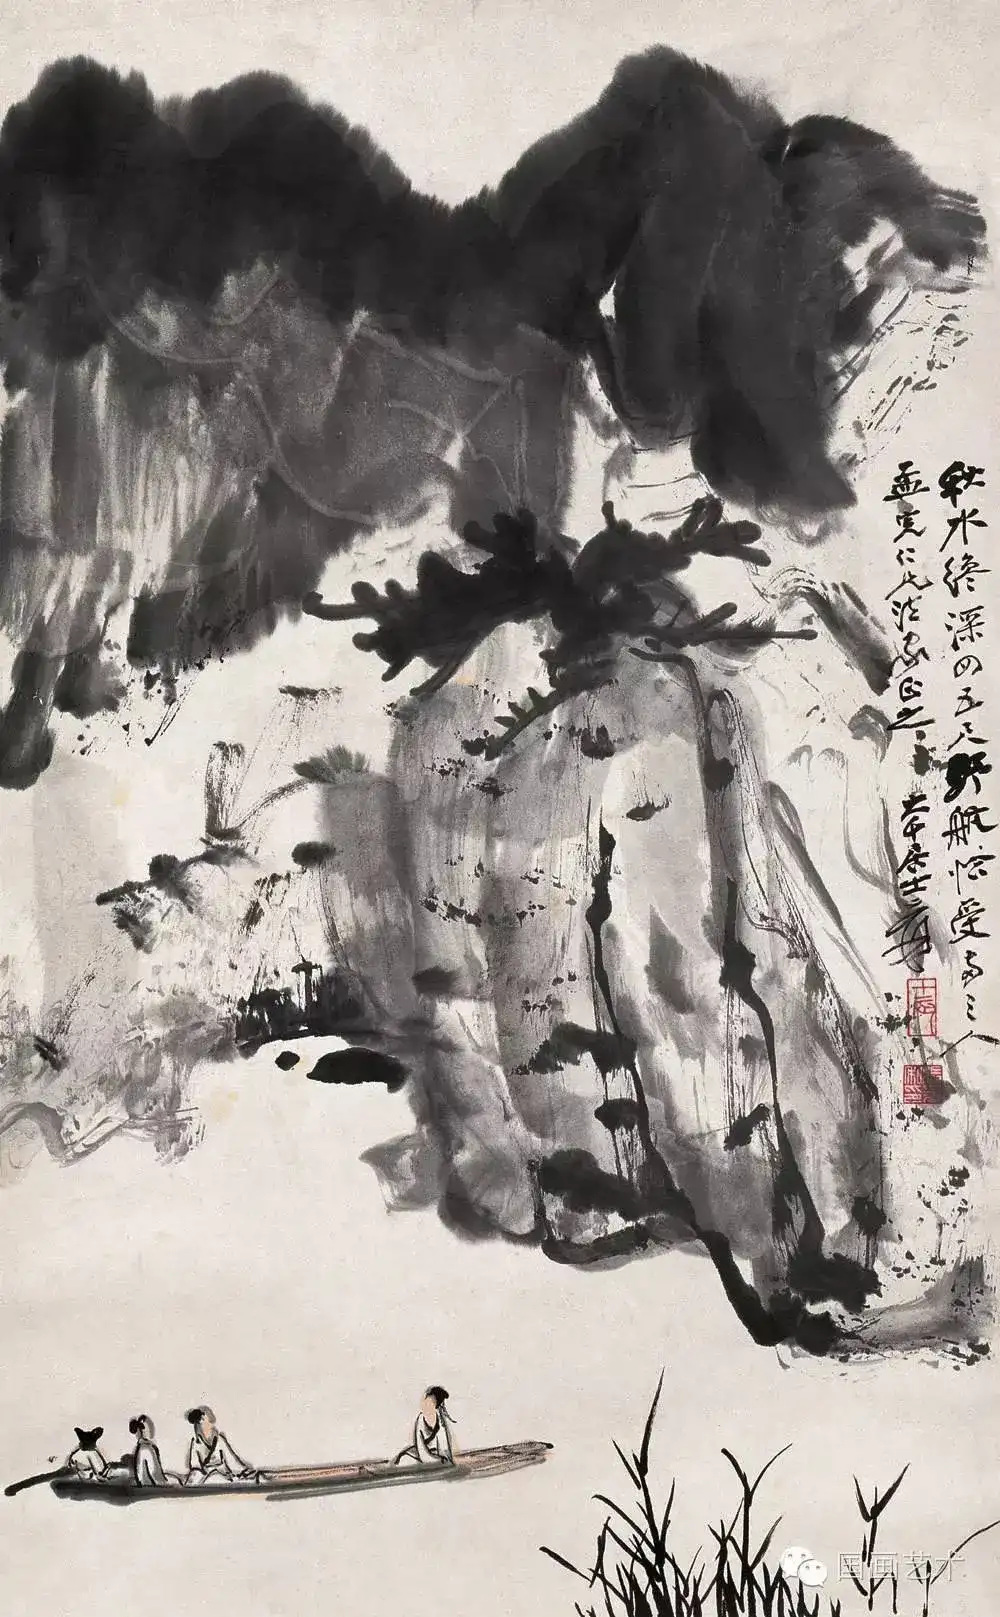 秋水纔深四五尺野航恰受兩三人
孟仁兄法家正之 大千居士爰
国画艺术